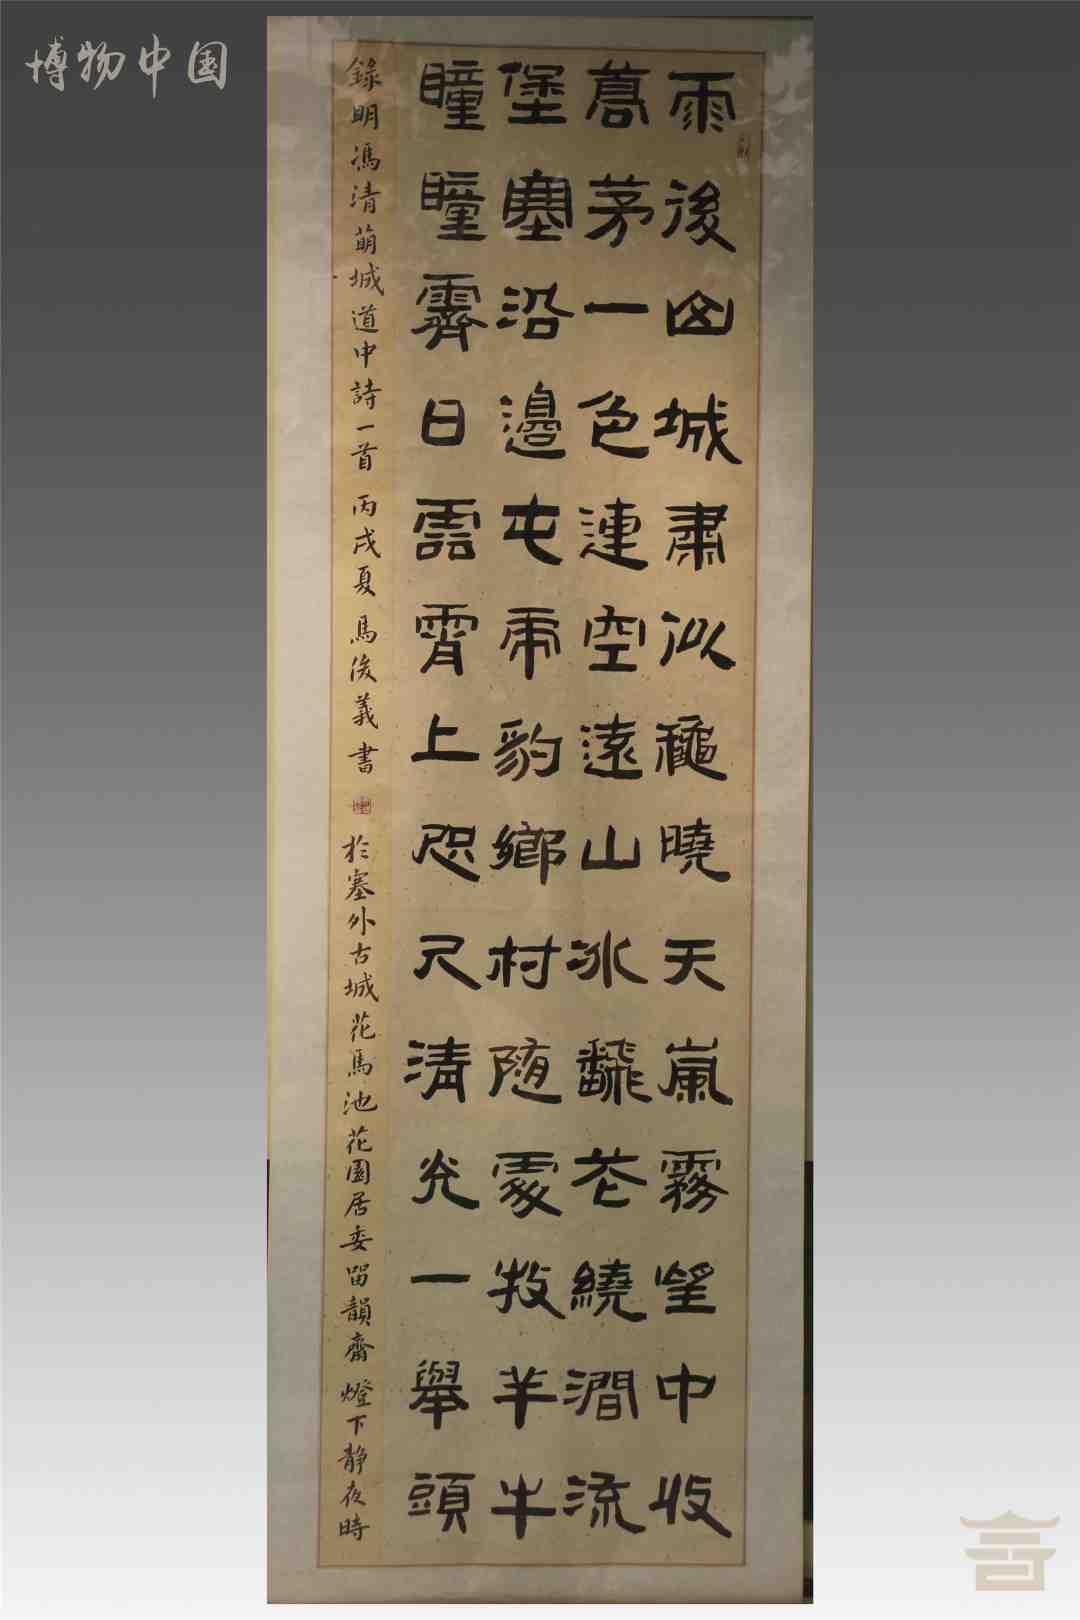 博物中国
雨後山城肅似龝曉天嵐霧望中收
蒿茅一色連空遠山水飜花繞澗流
堡塞沿邊屯虎豹鄉村随處牧羊牛
瞳瞳霽日雲霄上咫尺清光一舉頭
錄明馮清萌城道中詩一首丙戌夏馬俊義書
於塞外古城花馬池花園居委留韻齋燈下静夜時